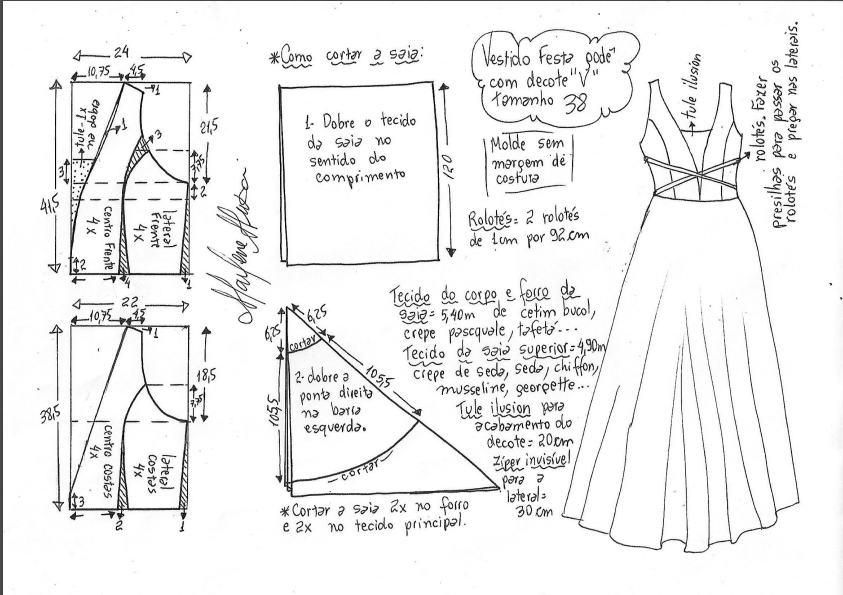 24
10,75
4,5
1
1
3
21,5
7,75
2
3
41,5
tule - 1x
na dobra
centro Frente
4x
lateral
Frente
4x
2
4
1
22
10,75
4,5
1
18,5
7,75
38,5
centro costas
4x
lateral
costas
4x
3
2
1
*Como cortar a saia:
1- Dobre o tecido
da saia no
sentido do
comprimento
120
6,25
6,25
cortar
105,5
105,5
2- dobre a
ponta direita
na barra
esquerda.
cortar
*Cortar a saia 2x no forro
e 2x no tecido principal.
Vestido Festa pode
com decote "V"
tamanho 38
Molde sem
margem de
costura
Rolotés= 2 rolotés
de 1cm por 92cm
Tecido do corpo e forro da
saia= 5,40m de cetim bucol,
crepe pascquale, tafetá...
Tecido da saia superior=4,90m
crepe de seda, seda, chiffon,
musseline, georgette...
Tule ilusion para
acabamento do
decote=20cm
Zíper invisível
para a
lateral=
30cm
tule ilusion
rolotés. Fazer
presilhas para passar os
rolotés e pregar nas laterais.